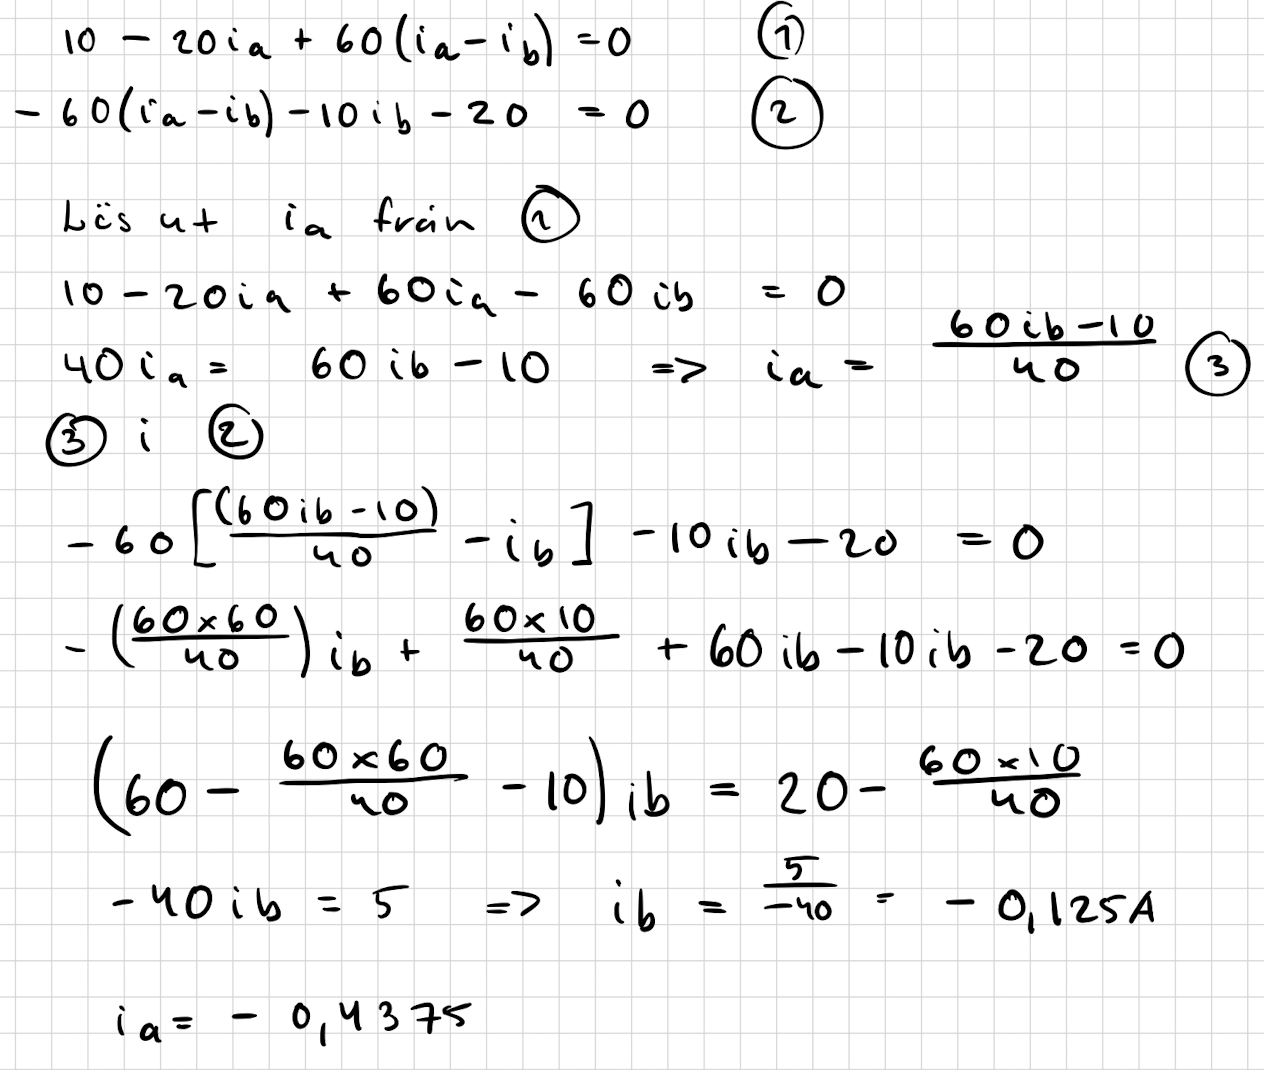 10 - 20ia + 60(ia - ib) = 0 ①
- 60(ia - ib) - 10ib - 20 = 0 ②
Lös ut ia från ①
10 - 20ia + 60ia - 60ib = 0
40ia = 60ib - 10 => ia = (60ib - 10)/40 ③
③ i ②
- 60[(60ib - 10)/40 - ib] - 10ib - 20 = 0
- (60×60/40)ib + 60×10/40 + 60ib - 10ib - 20 = 0
(60 - 60×60/40 - 10)ib = 20 - 60×10/40
- 40ib = 5 => ib = 5/-40 = - 0,125A
ia = - 0,4375